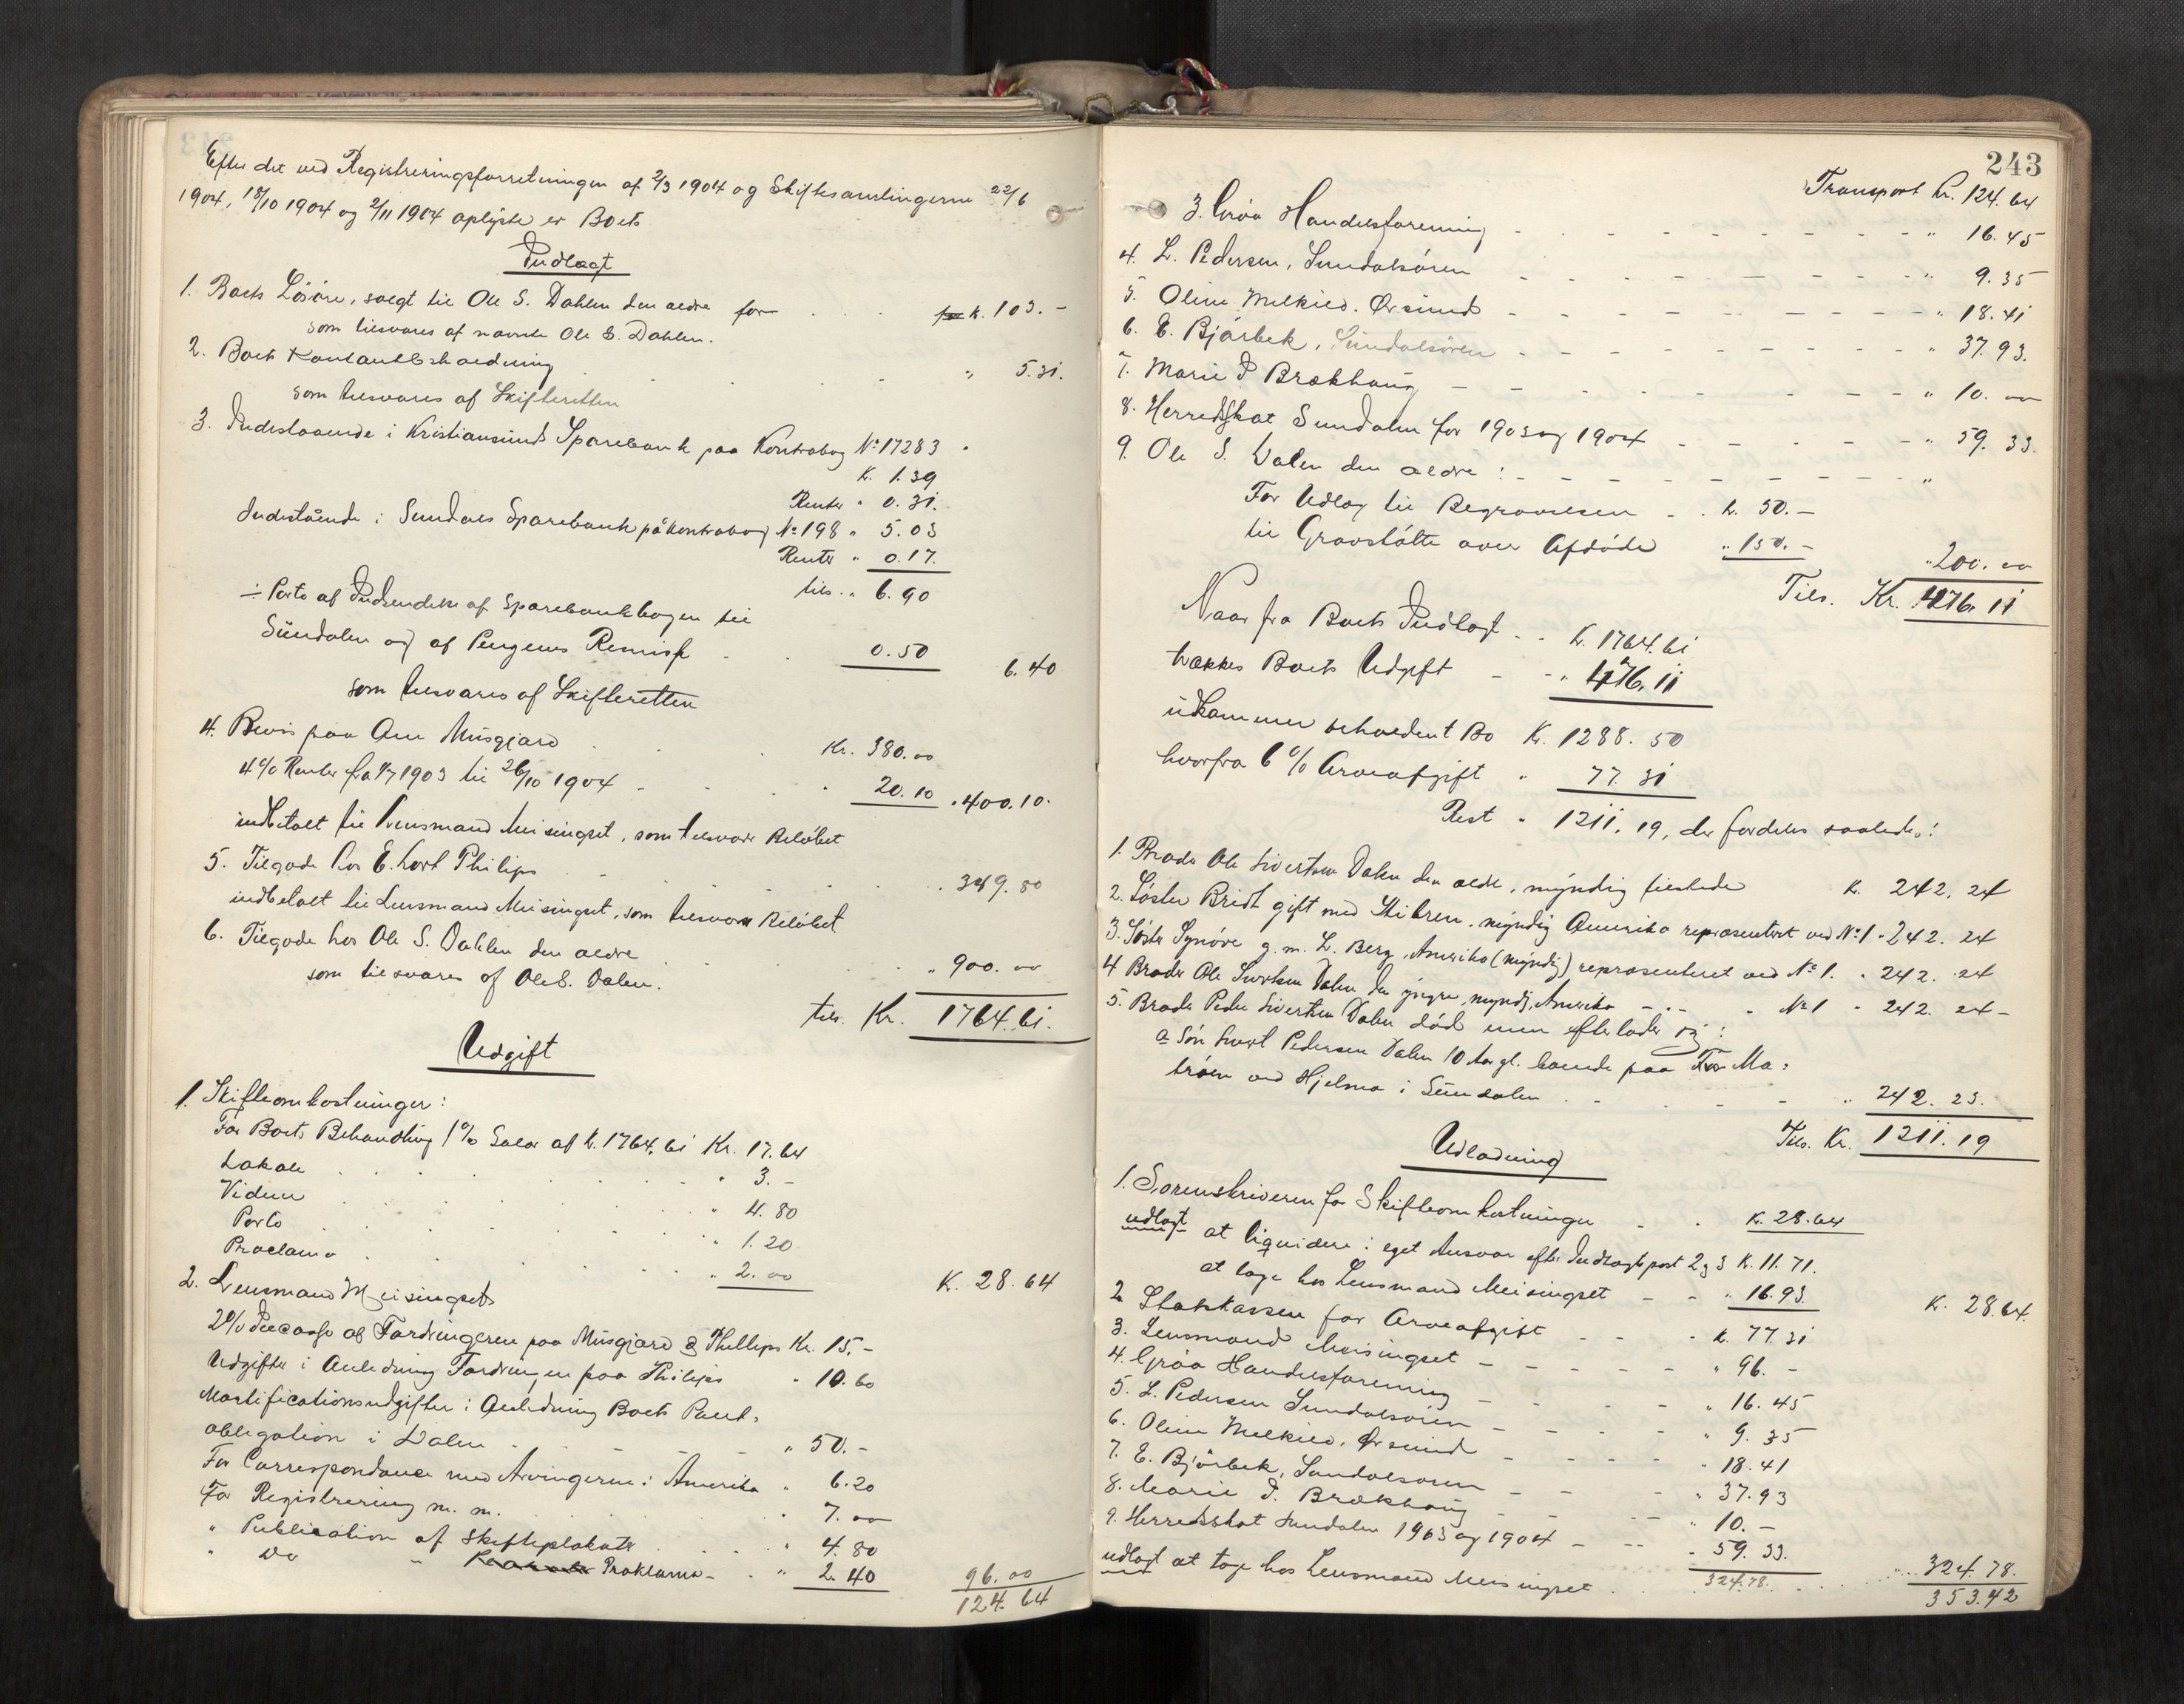 Efter det ved Registreringsforretningen af 2/3 1904 og Skiftesamlingerne 22/6
1904, 18/10 1904 og 2/11 1904 oplyste er Boets
Indtægt
1. Boets Løsøre, solgt til Ole S. Dahlen den ældre for . . . k. 103. -
som tilsvares af nævnte Ole S. Dahlen.
2. Boets Kontantbeholdning . . . " 5.31.
som tilsvares af Skifteretten
3. Indestaaende i Kristiansunds Sparebank paa Kontrabog No 17283 .
k. 1.39
Renter " 0.31.
Indestående i Sundals Sparebank på kontrabog No 198 " 5.03
Renter " 0.17.
tils. " 6.90
÷ Porto af Indsendelse af Sparebankbogen til
Sundalen og af Pengenes Remisse . . 0.50 6.40
som tilsvares af Skifteretten
4. Bevis paa Ane Musgjerd . . . Kr. 380.00
4% Renter fra 1/7 1903 til 26/10 1904 - . . . 20.10 " 400.10.
indbetalt til Lensmand Meisingset, som tilsvarer Beløbet
5. Tilgode hos E. Lort Philips . . . " 349.80
indbetalt til Lensmand Meisingset, som tilsvarer Beløbet
6. Tilgode hos Ole S. Dahlen den ældre . . . " 900.00
som tilsvares af Ole S. Dalen.
tils. Kr. 1764.61.
Udgift
1. Skifteomkostninger:
For Boets Behandling 1% Salær af k. 1764.61 Kr. 17.64
Lokale . . . " 3. -
Vidner . . . " 4.80
Porto . . . " 1.20
Proclama . . . " 2.00 K. 28.64
2. Lensmand Meisingset
2% Incasso af Fordringerne paa Musgjerd & Phillips Kr. 15. -
Udgifter i Anledning Fordringen paa Philips " 10.60
Mortificationsudgifter i Anledning Boets Pant-
obligation i Dalen . . . " 50. -
For Correspondance med Arvingerne i Amerika " 6.20
For Registrering m. m. . . . " 7.00
" Publication af Skifteplakater . . . " 4.80
" Do " Proklama - . " 2.40 96.00
124.64
243
Transport k. 124.64
3. Grøa Handelsforening - - - " 16.45
4. L. Pedersen, Sundalsøren - - - " 9.35
5. Oline Melkild. Ørsund - - - " 18.41
6. E. Bjørbek, Sundalsøren - - - " 37.93.
7. Marie I Brækhaug - - - " 10.00
8. Herredskat Sundalen for 1903 og 1904 - - - " 59.33.
9. Ole S. Dalen den ældre: - - - "
For Udlæg til Begravelsen - . k. 50. -
til Gravstøtte over Afdøde " 150. - " 200.00
Tils. Kr. 476.11
Naar fra Boets Indtægt - . k. 1764.61
trækkes Boets Udgift - - " 476.11
udkommer beholdent Bo K. 1288.50
hvorfra 6% Arveafgift " 77.31
Rest " 1211.19, der fordeles saaledes:
1. Broder Ole Sivertsen Dalen den ældre, myndig tilstede K. 242.24
2. Søster Bridt gift med Stibren, myndig Amerika repræsenteret ved No 1 - 242.24
3. Søster Synøve g. m. L. Berg, Amerika (myndig) repræsenteret ved No 1. " 242.24
4 Broder Ole Sivertsen Dalen den yngre, myndig, Amerika - . - " No 1 - 242.24 -
5. Broder Peder Sivertsen Dalen død men efterlader sig:
a Søn Sivert Pedersen Dalen 10 Aar gl. boende paa Ma-
brøen ved Hjelmo i Sundalen . . . " 242.23.
Tils. Kr. 1211.19
Udlodning
1. Sorenskriveren for Skifteomkostninger - . K. 28.64
udlagt at liquidere i eget Ansvar efter Indtægtspost 2 og 3 K. 11.71.
at tage hos Lensmand Meisingset - - " 16.93. K. 28.64.
2 Statskassen for Arveafgift - - - k. 77.31
3. Lensmand Meisingset - - - " 96. -
4. Grøa Handelsforening - - - " 16.45
5. L. Pedersen Sundalsøren - - - " 9.35
6. Oline Melkild, Ørsund - - - " 18.41
7. E. Bjørbek, Sundalsøren - - - " 37.93
8. Marie I. Brækhaug - - - " 10. -
9. Herredsskat Sundalen 1903 og 1904 - - - " 59.33.
udlagt at tage hos Lensmand Meisingset . . . 324.78. " 324.78.
353.42